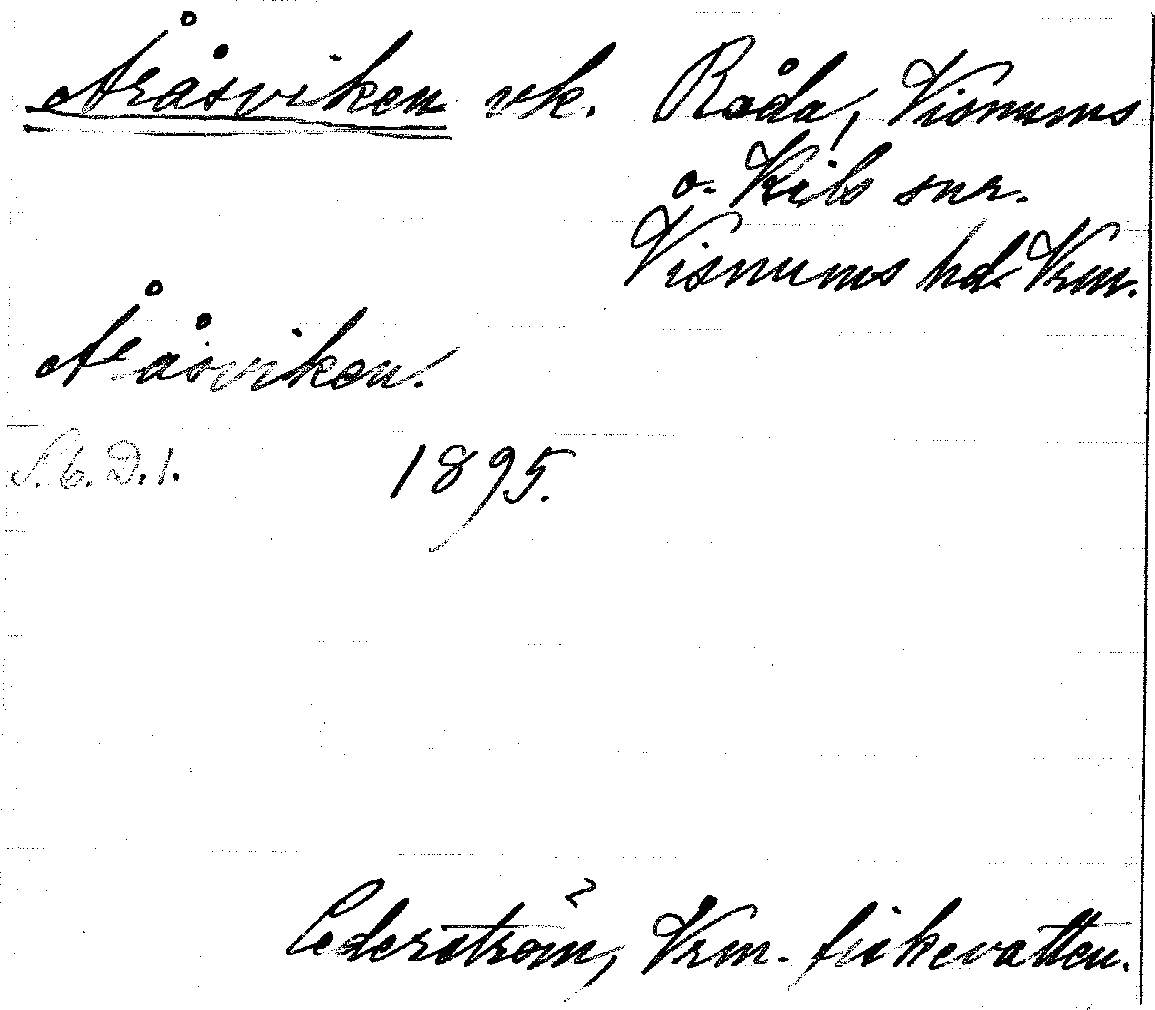 Åråsviken vk. Råda, Visnums
o. Kils snr.
Visnums hd Vrm.
Åråsviken.
S. C. D. 1. 1895.
Cederström, Vrm. fiskevatten.